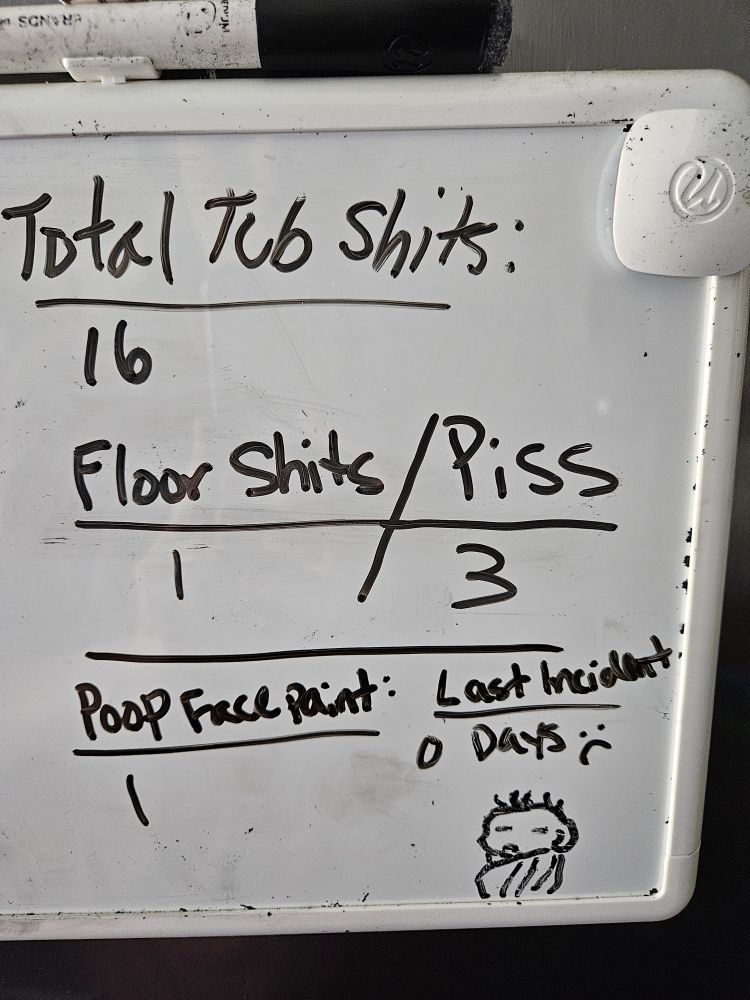 Total Tub Shits:
16
Floor Shits / Piss
1 3
Poop Face Paint: Last Incident
1 0 Days :(